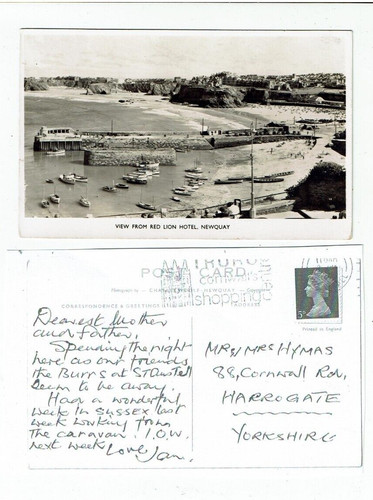 VIEW FROM RED LION HOTEL, NEWQUAY
TRURO
cornwall's
shopping
POST CARD
CORRESPONDENCE & GREETINGS
ADDRESS
5D
Printed in England
Dearest Mother
and father,
Spending the night
here as our friends
the Burrs at St Austell
seem to be away.
Had a wonderful
week in Sussex last
week working from
the caravan. I.O.W.
next week
Love Jan.
MR & MRS HYMAS
88, Cornwall Rd,
HARROGATE
YORKSHIRE